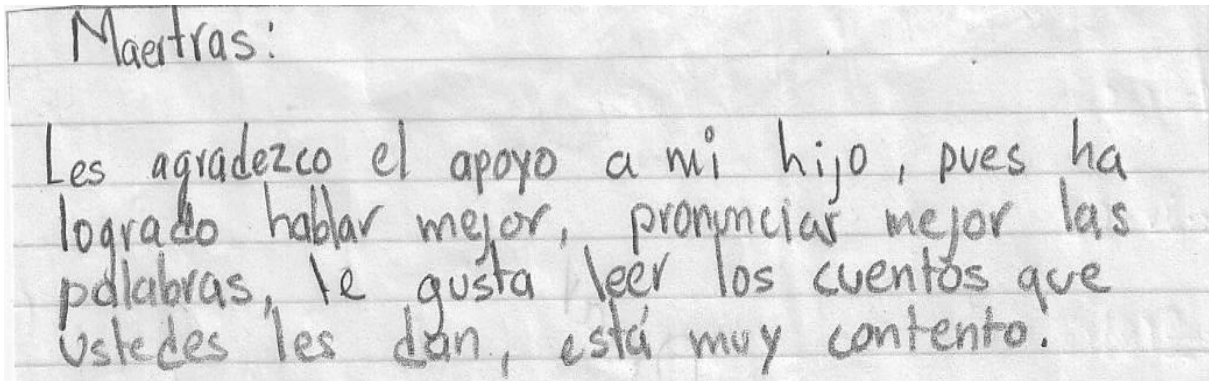 Maestras:
Les agradezco el apoyo a mi hijo, pues ha
logrado hablar mejor, pronunciar mejor las
palabras, le gusta leer los cuentos que
ustedes les dan, está muy contento.